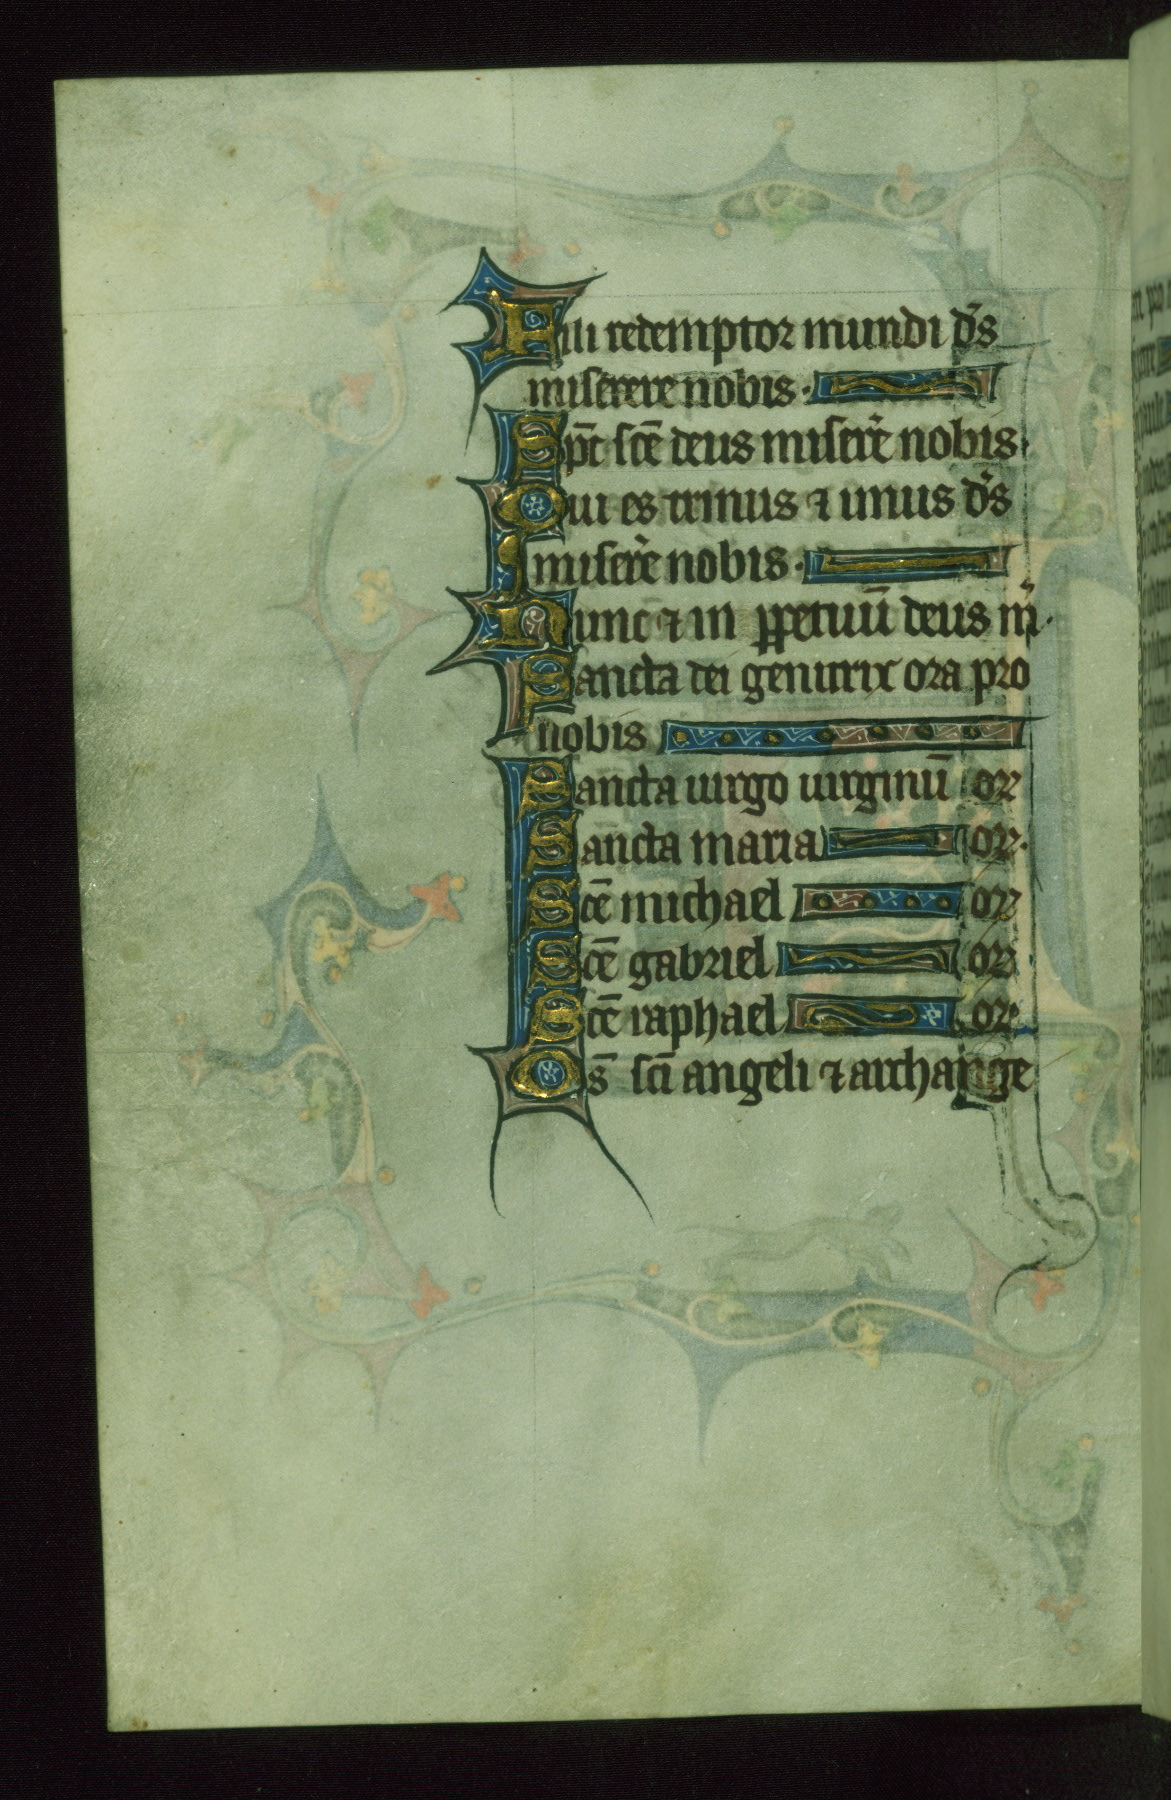 Fili redemptor mundi d̄s
miserere nobis·
Sp̄c sc̄e deus miser̄e nobis·
Qui es trinus ⁊ unus d̄s
miser̄e nobis·
Nunc ⁊ in ꝑpetuū deus m̄·
Sancta dei genitrix ora pro
nobis
Sancta uirgo uirginū or
Sancta maria or·
Sc̄e michael or
Sc̄e gabriel or
Sc̄e raphael or·
Om̄s sc̄i angeli ⁊ archange